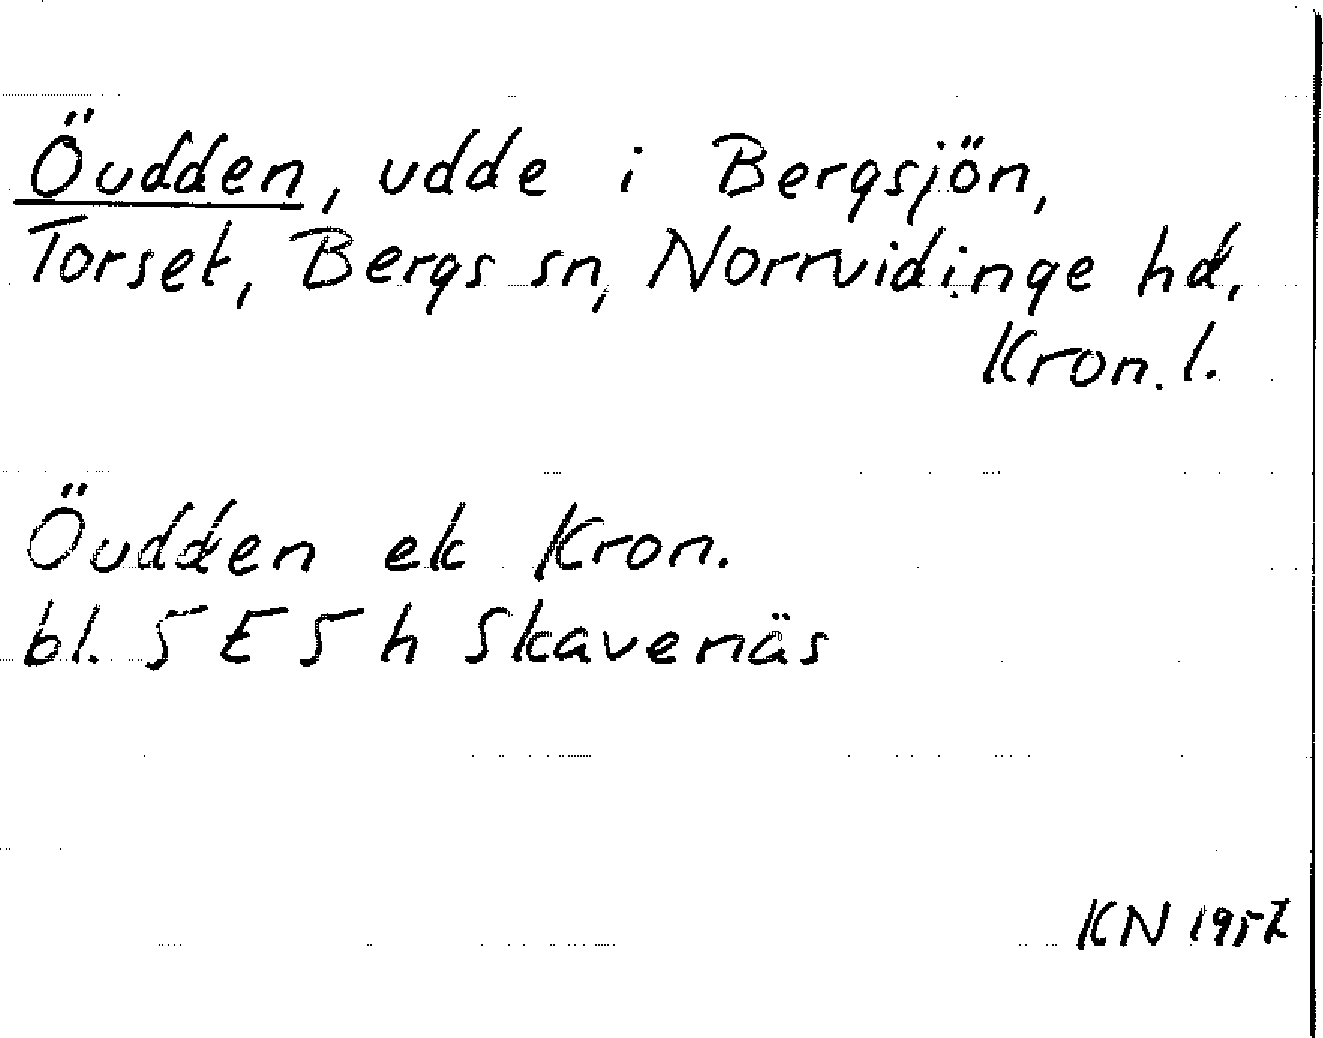 Öudden, udde i Bergsjön,
Torset, Bergs sn, Norrvidinge hd,
Kron. l.
Öudden ek Kron.
bl. 5 E 5 h Skavenäs
KN 1957